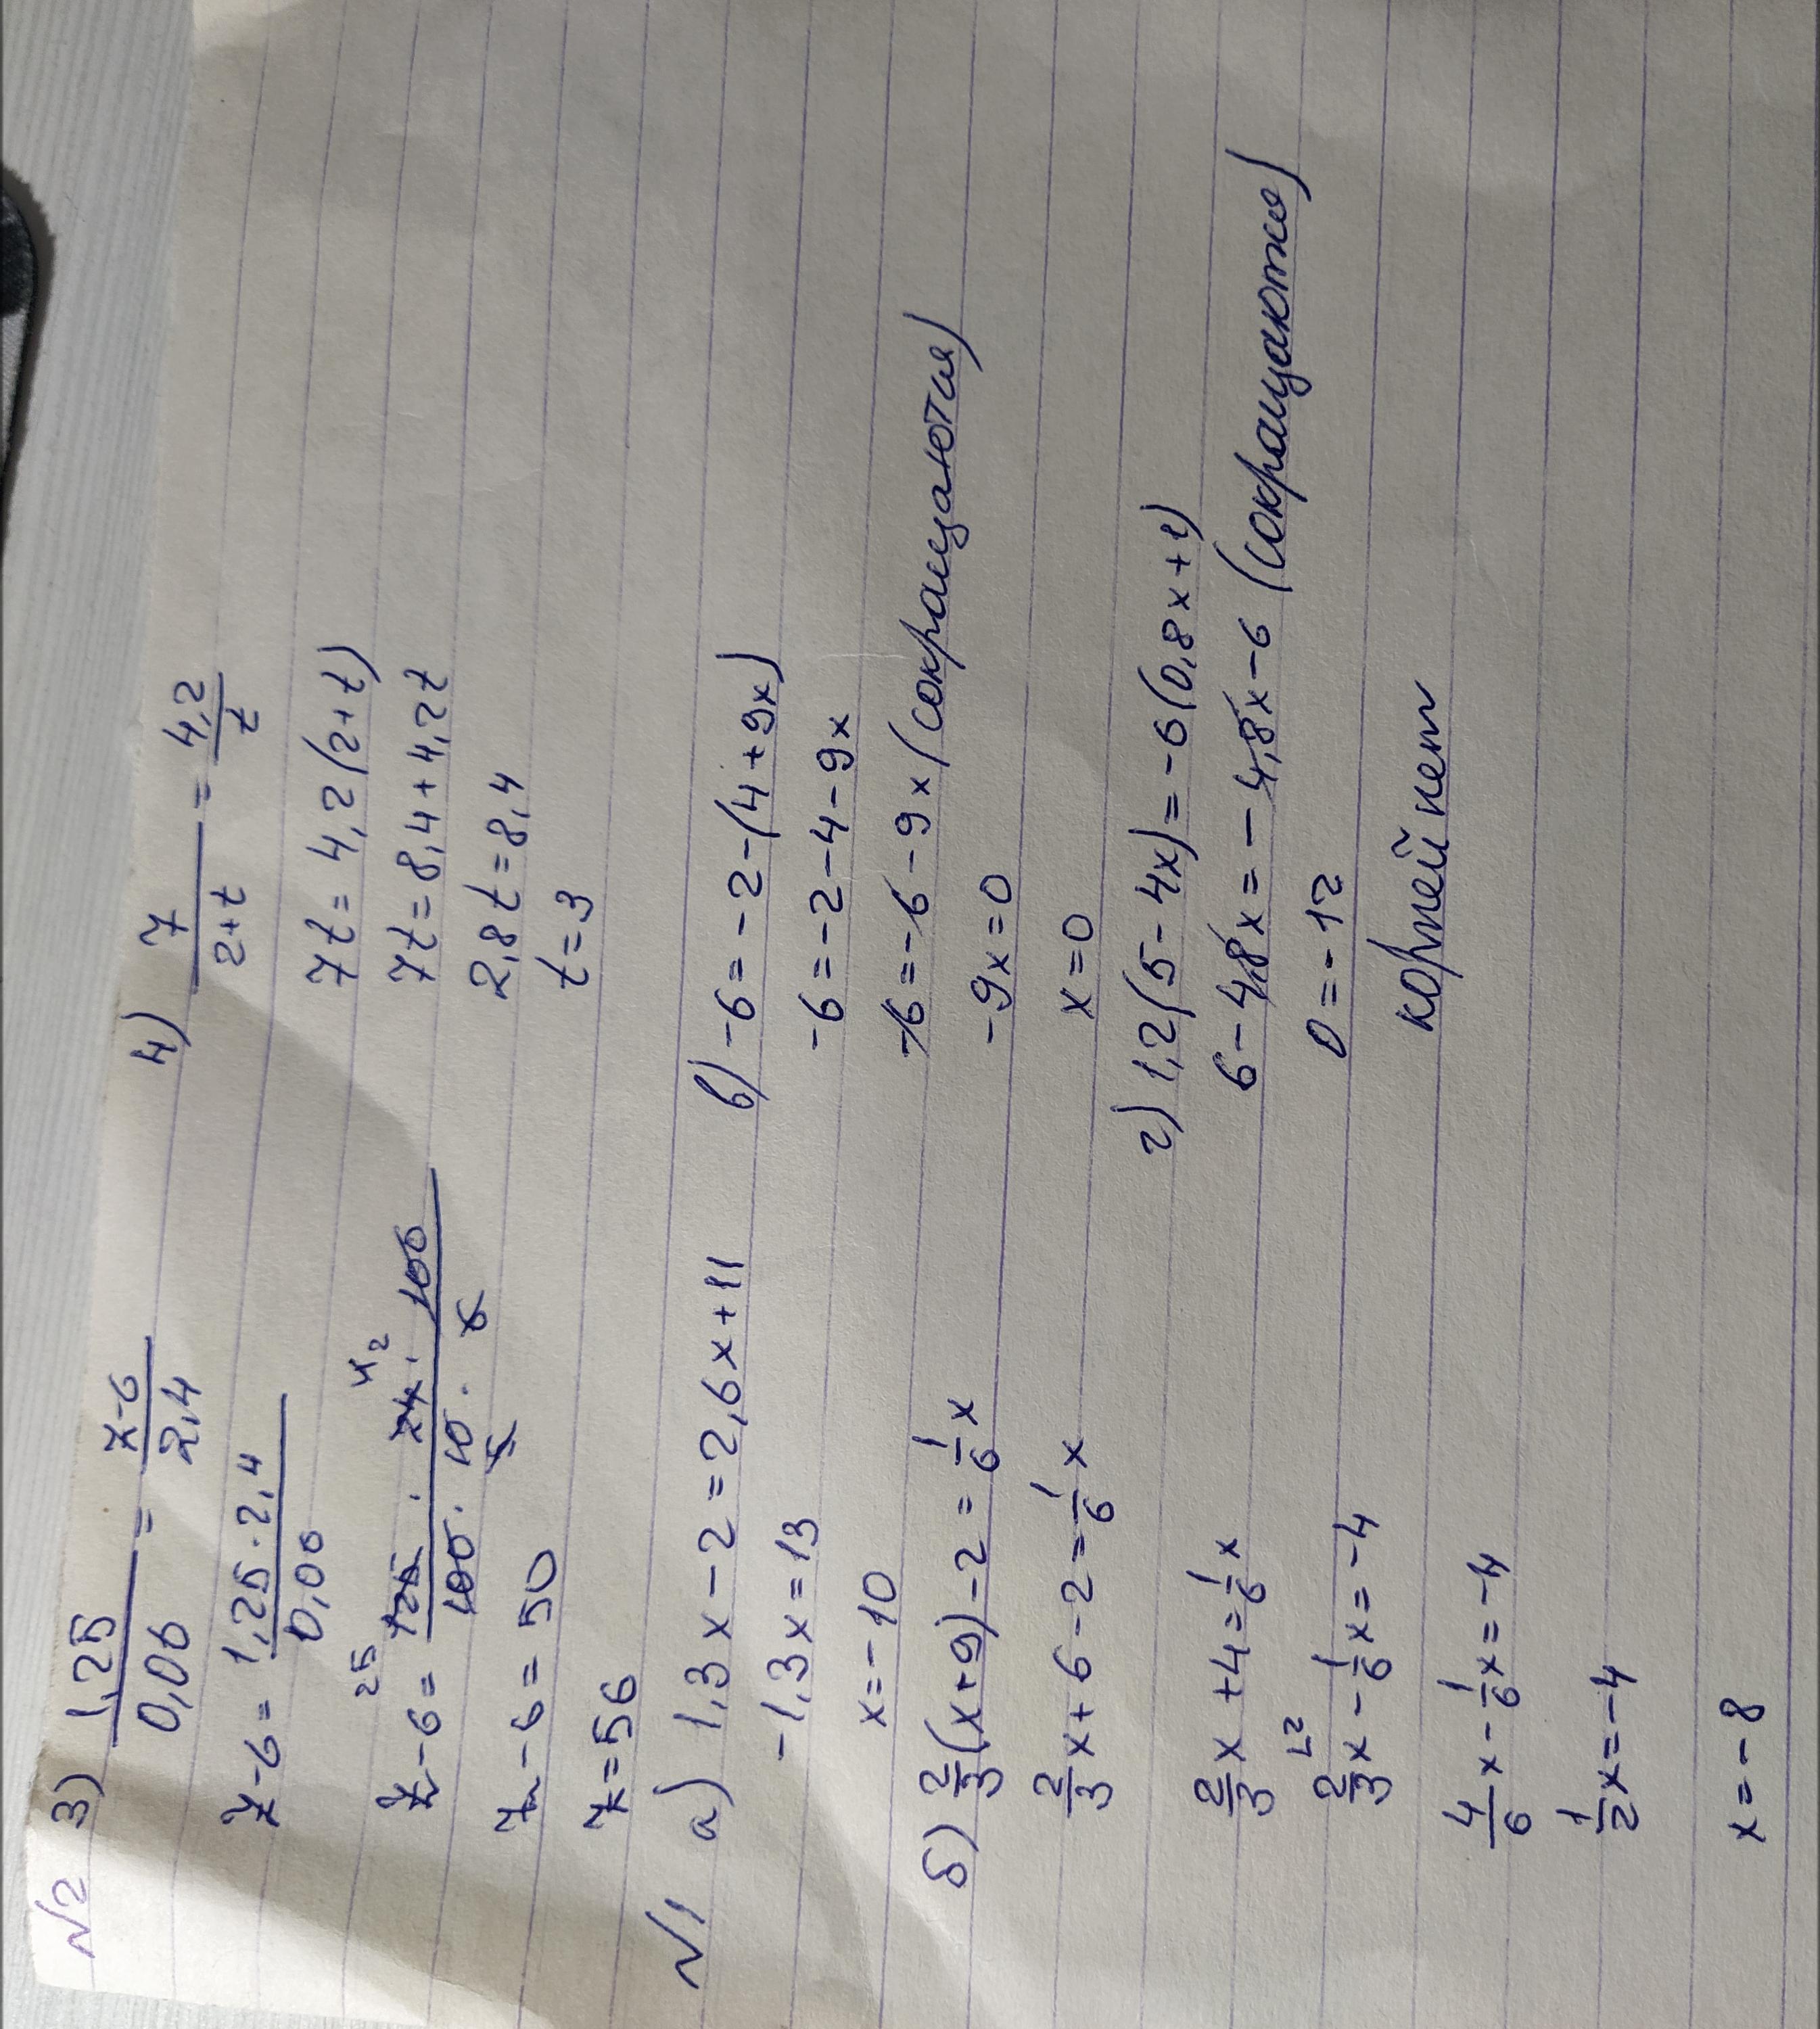 N2 3) 1,25/0,06 = x-6/2,4
x-6 = 1,25·2,4/0,06
x-6 = 125·24·100/100·10·6 25 4 2 5
x-6 = 50
x=56
4) 7/2+t = 4,2/t
7t = 4,2(2+t)
7t = 8,4+4,2t
2,8t = 8,4
t=3
N1 а) 1,3x-2=2,6x+11
-1,3x=13
x=-10
б) 2/3(x+9)-2 = 1/6x
2/3x+6-2=1/6x
2/3x+4=1/6x
2/3x-1/6x=-4
4/6x-1/6x=-4
1/2x=-4
x=-8
в) -6=-2-(4+9x)
-6=-2-4-9x
-6=-6-9x (сокращаются)
-9x=0
x=0
г) 1,2(5-4x)=-6(0,8x+1)
6-4,8x=-4,8x-6 (сокращаются)
0=-12
корней нет